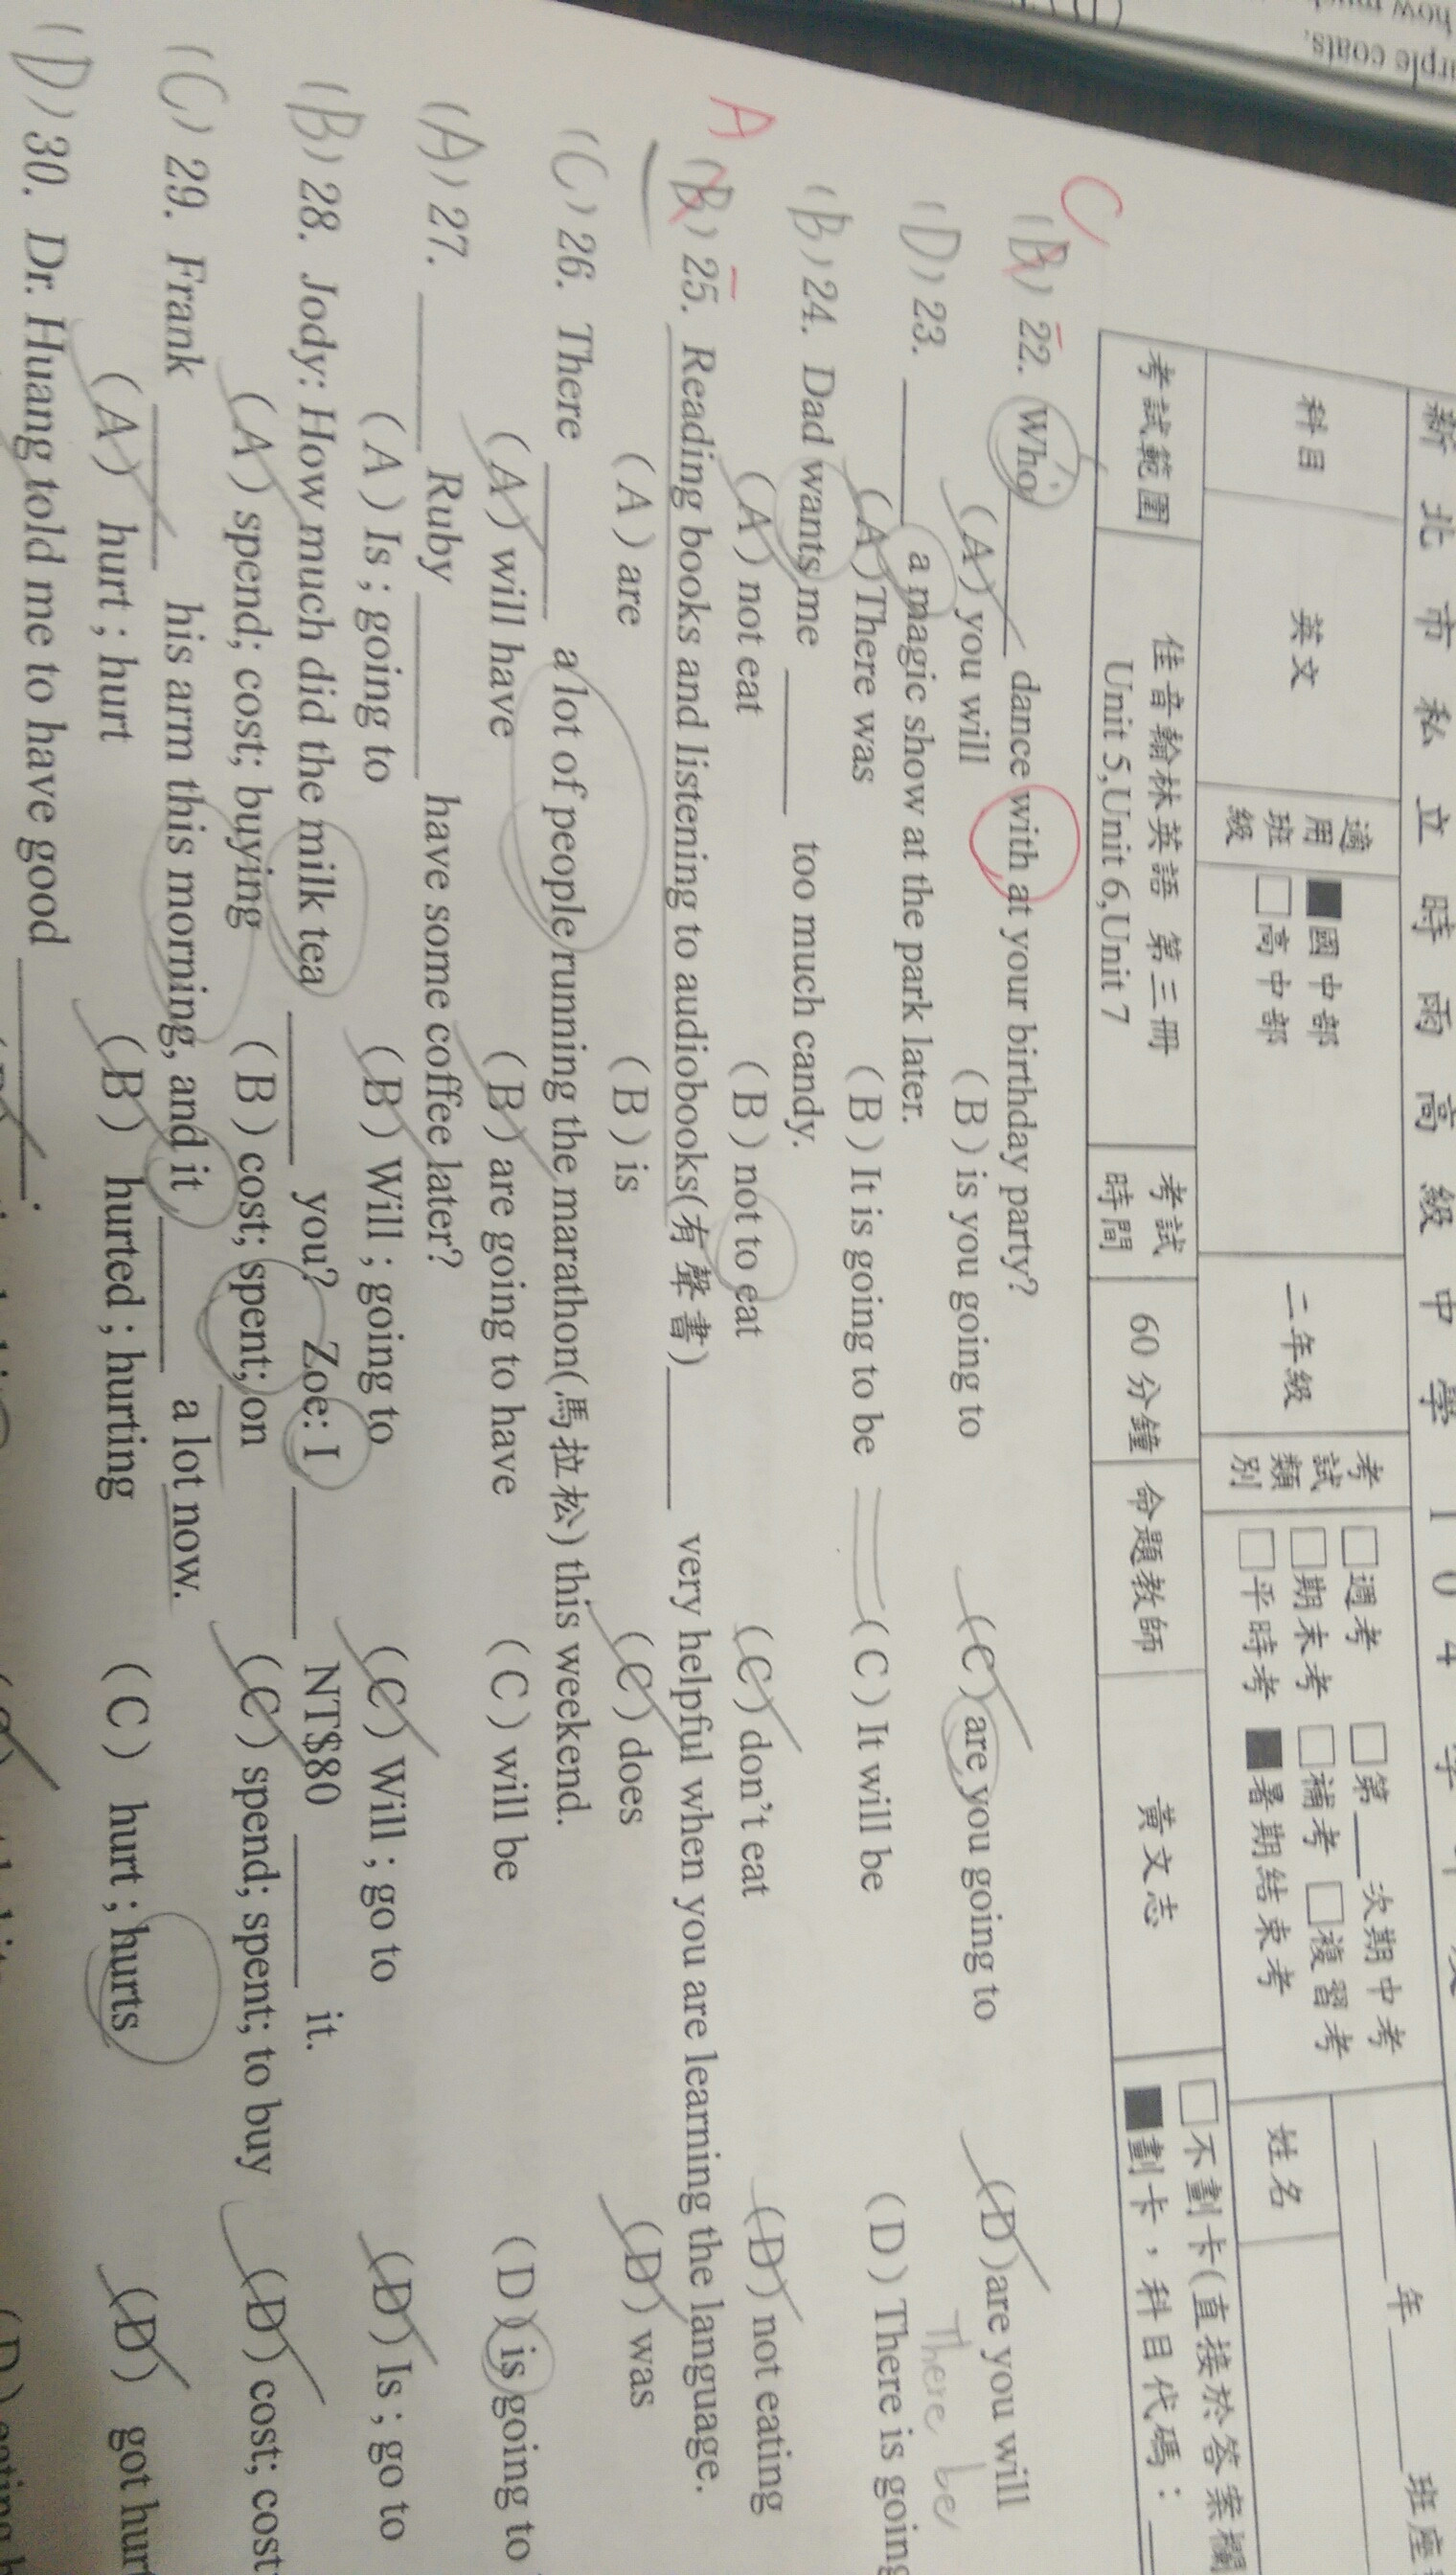 how much
rple coats.
新北市私立時雨高級中學104學年度
科目 英文 適用班級 ■國中部 □高中部 二年級 考試類別 □週考 □第__次期中考 □期末考 □補考 □複習考 □平時考 ■暑期結束考 姓名 ____年____班座
考試範圍 佳音翰林英語 第三冊 Unit 5,Unit 6,Unit 7 考試時間 60分鐘 命題教師 黃文志 □不劃卡(直接於答案欄 ■劃卡，科目代碼：
C
(B) 22. Who ______ dance with at your birthday party?
(A) you will (B) is you going to (C) are you going to (D) are you will
There be
(D) 23. ______ a magic show at the park later.
(A) There was (B) It is going to be (C) It will be (D) There is going
(B) 24. Dad wants me ______ too much candy.
(A) not eat (B) not to eat (C) don't eat (D) not eating
A
(B) 25. Reading books and listening to audiobooks(有聲書)______ very helpful when you are learning the language.
(A) are (B) is (C) does (D) was
(C) 26. There ______ a lot of people running the marathon(馬拉松) this weekend.
(A) will have (B) are going to have (C) will be (D) is going to
(A) 27. ______ Ruby ______ have some coffee later?
(A) Is ; going to (B) Will ; going to (C) Will ; go to (D) Is ; go to
(B) 28. Jody: How much did the milk tea ______ you? Zoe: I ______ NT$80 ______ it.
(A) spend; cost; buying (B) cost; spent; on (C) spend; spent; to buy (D) cost; cost
(C) 29. Frank ______ his arm this morning, and it ______ a lot now.
(A) hurt ; hurt (B) hurted ; hurting (C) hurt ; hurts (D) got hurt
(D) 30. Dr. Huang told me to have good ______.